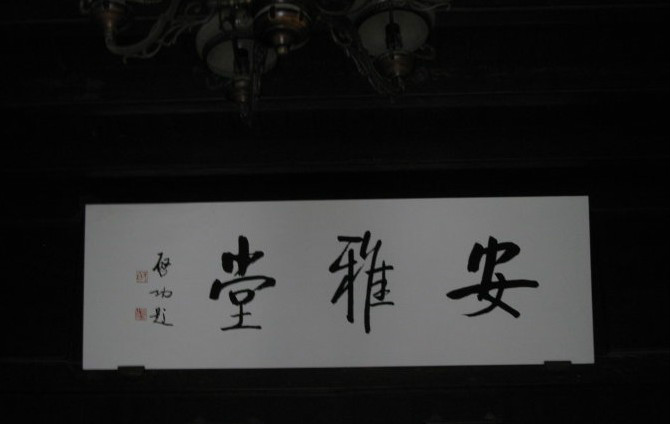 安雅堂
启功题